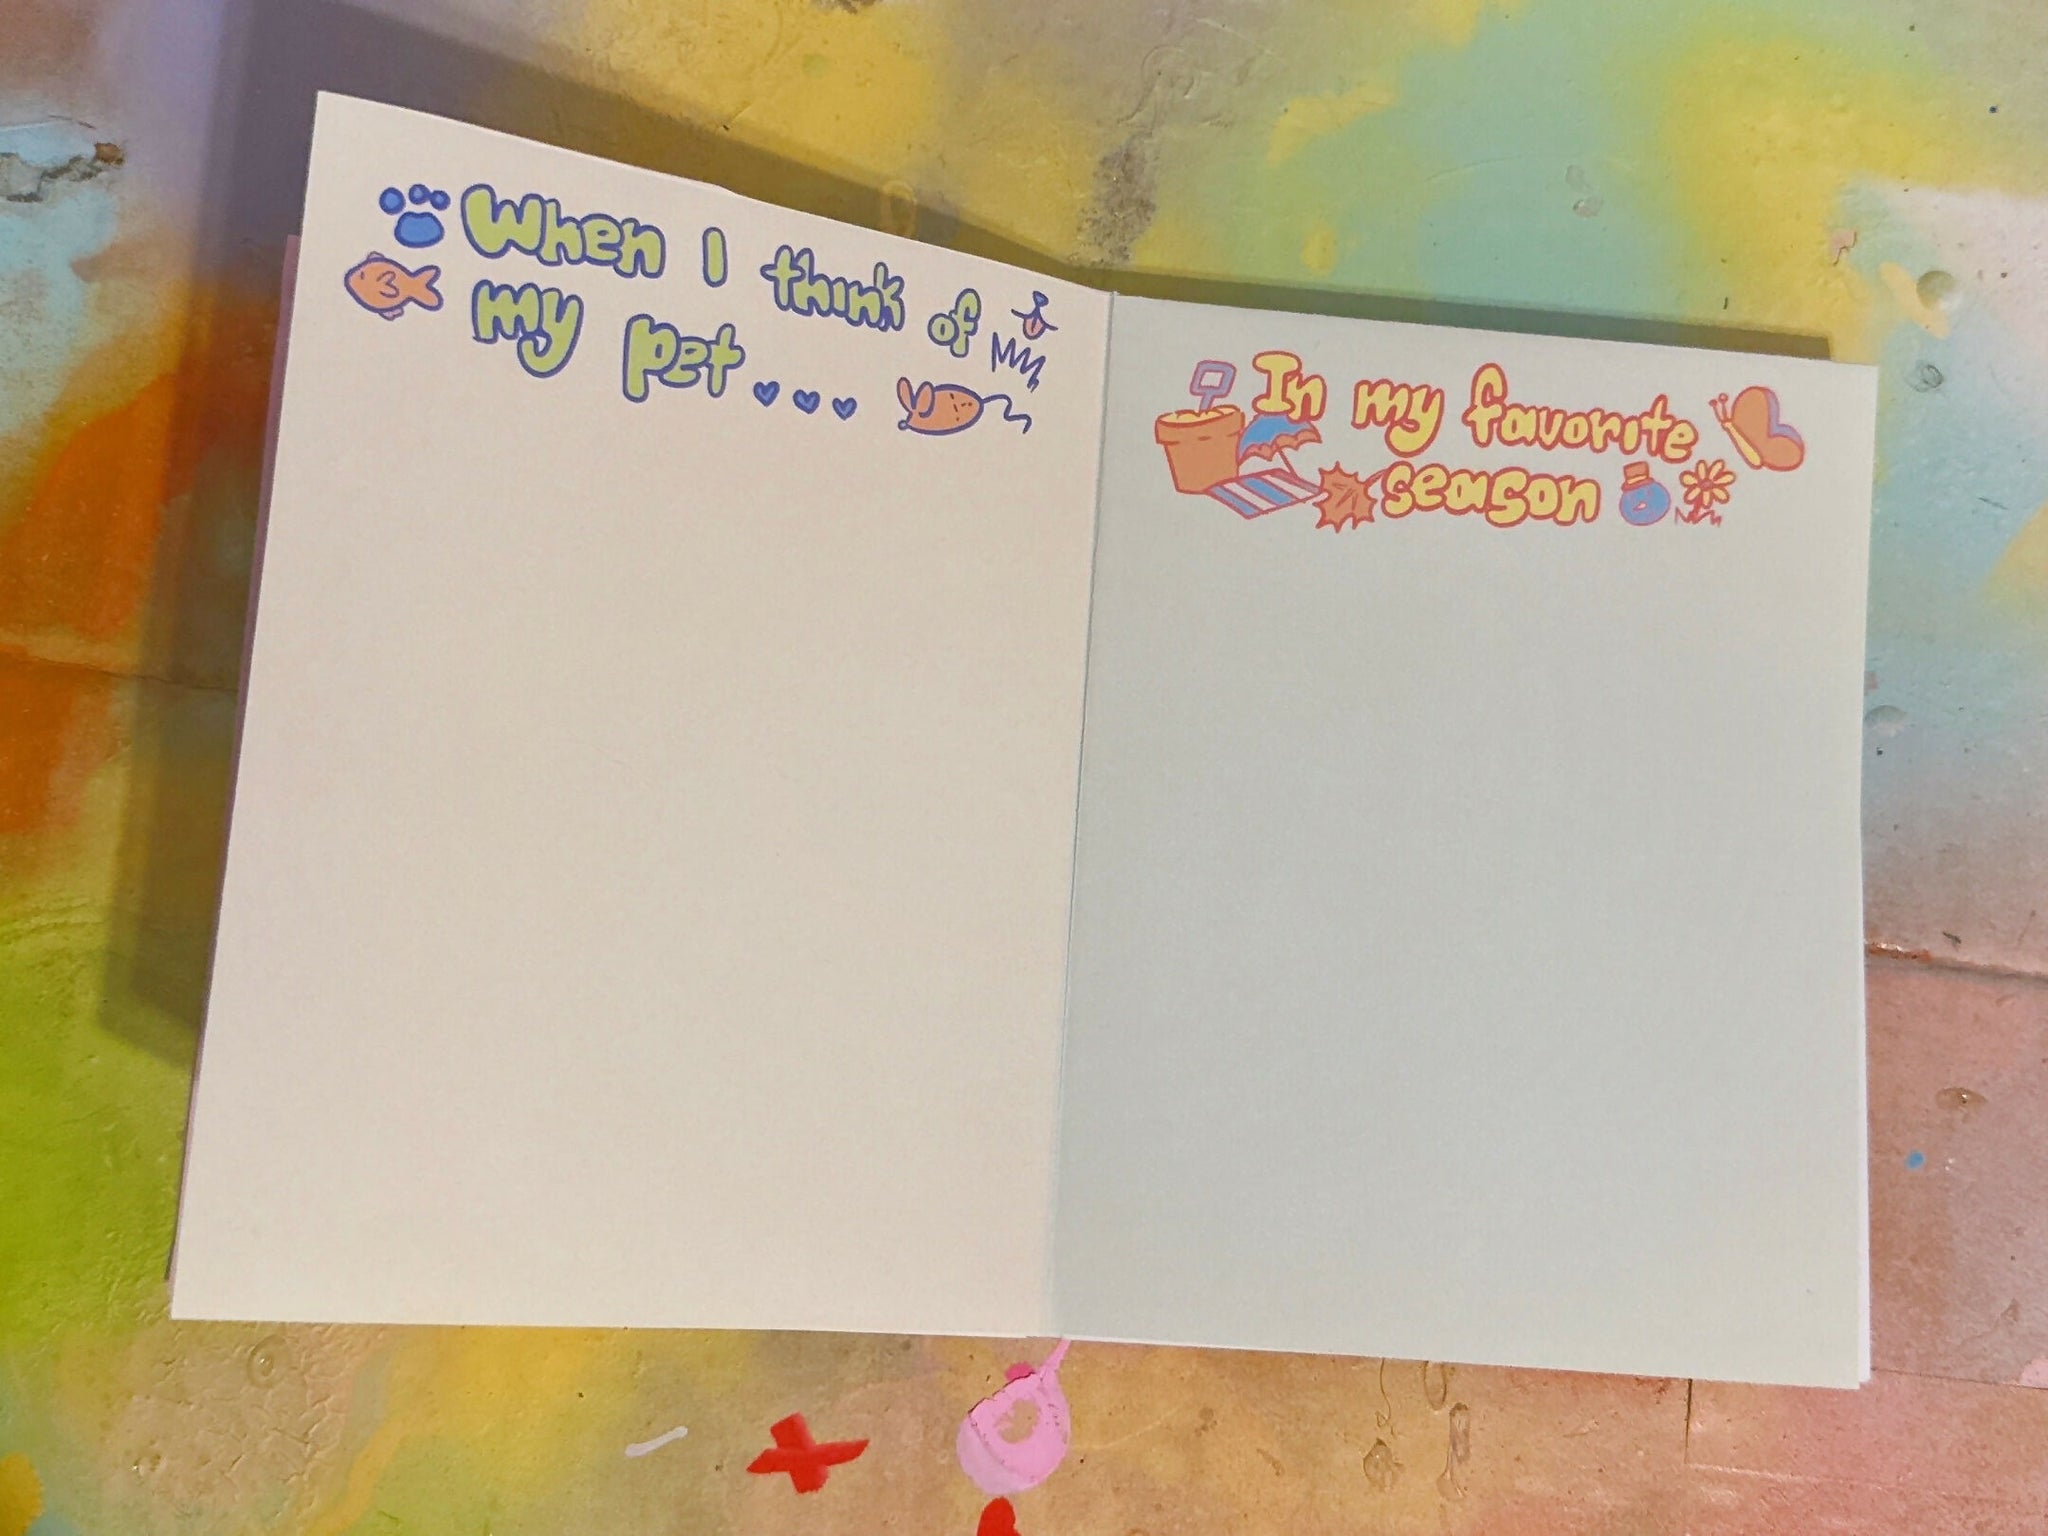 When I think of
my pet...
In my favorite
season